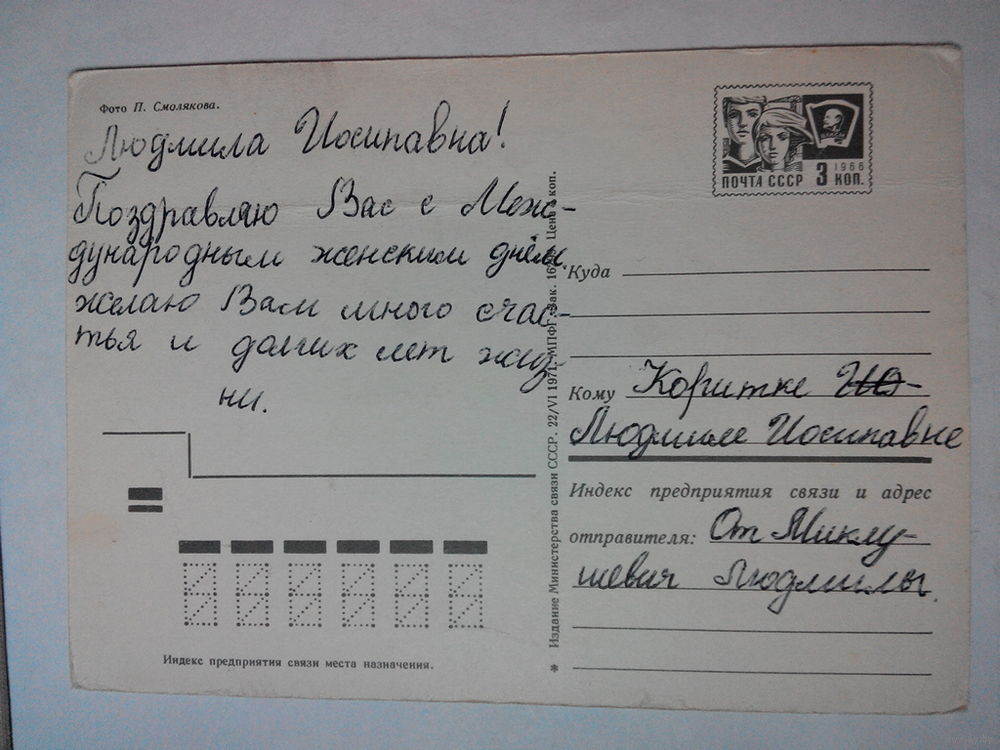 Фото П. Смолякова.
Людмила Иосипавна!
Поздравляю Вас с Меж-
дународным женским днём,
желаю Вам много счас-
тья и долгих лет жиз-
ни.
Индекс предприятия связи места назначения.
Издание Министерства связи СССР. 22/VI 1971. МПФГ. Зак. Цена коп.
1966
ПОЧТА СССР 3 КОП.
Куда
Кому Коритке
Людмиле Иосипавне
Индекс предприятия связи и адрес
отправителя: От Миклу-
шевич Людмилы.